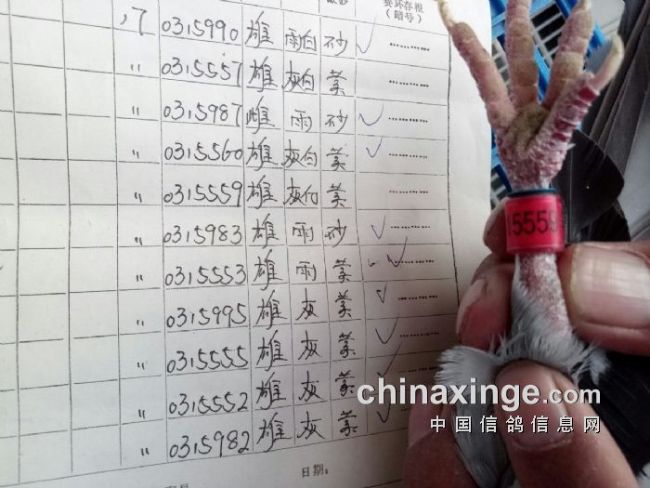 赛环存根
（暗号）
17 0315990 雄 雨白 砂 ✓
" 0315557 雄 灰白 黄
" 0315987 雌 雨 砂 ✓
" 0315560 雄 灰白 黄 ✓
" 0315559 雄 灰白 黄
" 0315983 雄 雨 砂 ✓
" 0315553 雄 雨 黄 ✓
" 0315995 雄 灰 黄 ✓
" 0315555 雄 灰 黄 ✓
" 0315552 雄 灰 黄 ✓
" 0315982 雄 灰 黄 ✓
日期：
15559
chinaxinge.com
中国信鸽信息网